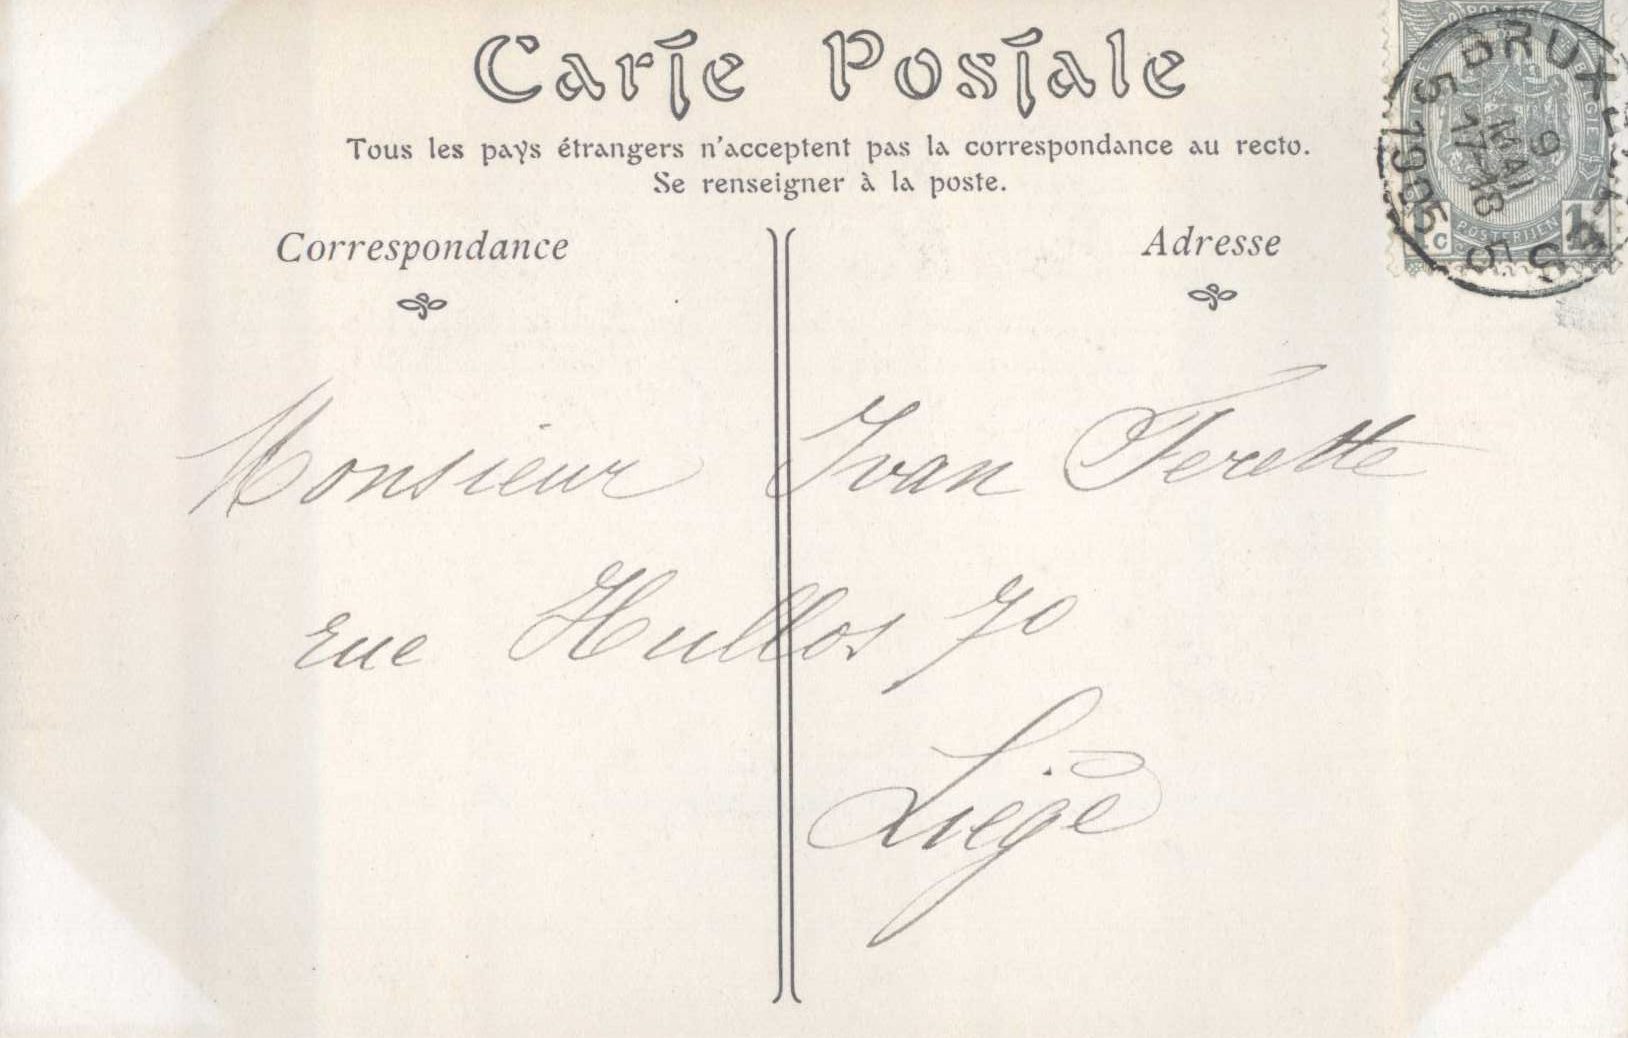 Carte Postale
Tous les pays étrangers n'acceptent pas la correspondance au recto.
Se renseigner à la poste.
Correspondance
Adresse
Monsieur Ivan Ferette
rue Hullos 70
Liège
BRUXELLES
5 5
9
MAI
17-18
1905
POSTERIJEN
1c